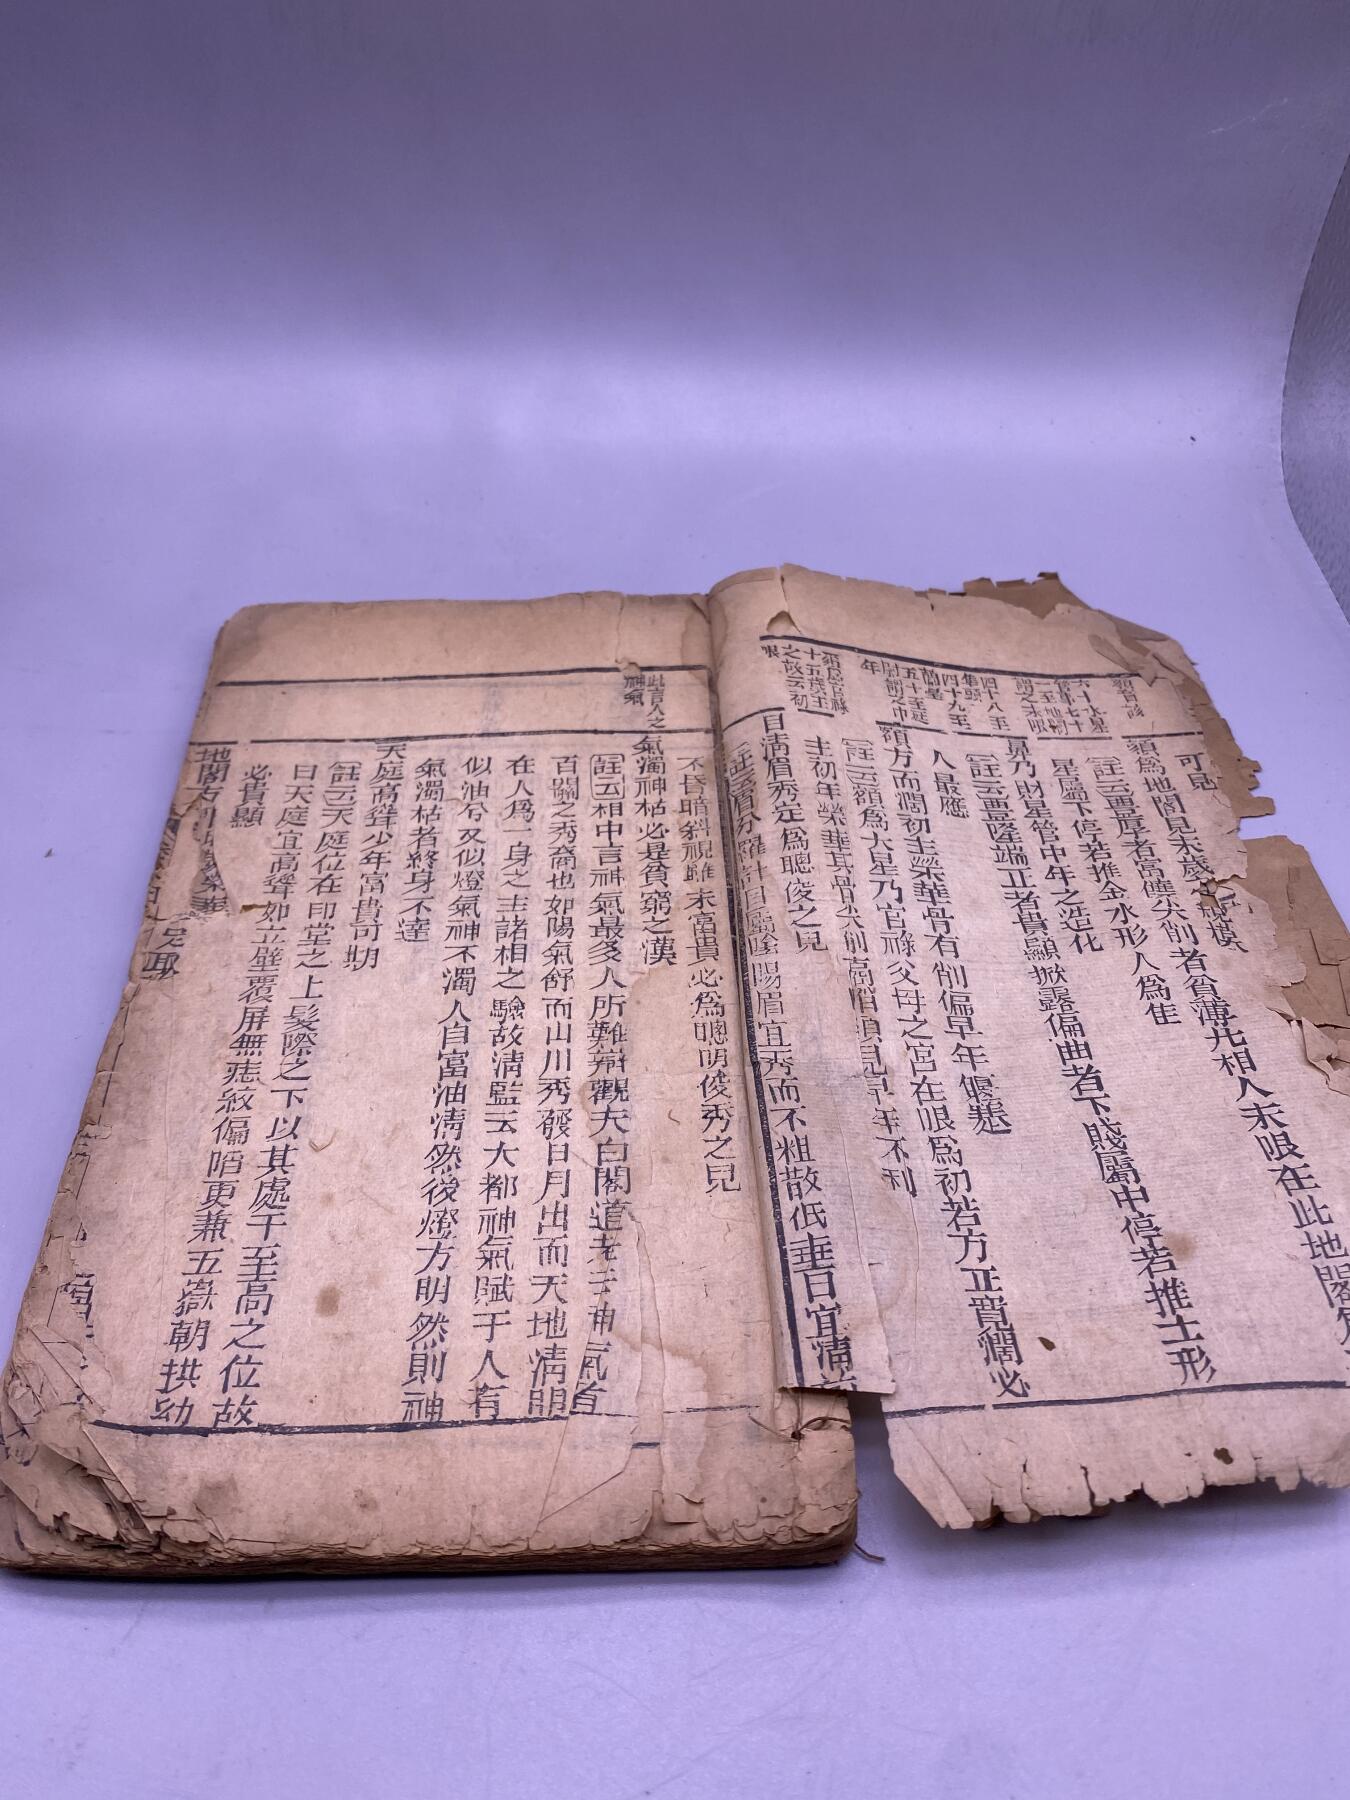 可見
須為地閣見末歲之規模
註云豐厚者富饒尖削者貧薄凡相人末限在此地閣為
星屬下停若推金水形人為佳
鼻乃財星管中年之造化
註云豐隆端正者貴顯掀露偏曲者下賤屬中停若推土形
人最應
額方而濶初主榮華骨有削偏早年偃蹇
註云額為火星乃官祿父母之宮在限為初若方正寬濶必
主初年榮華其骨尖削高陷損見早年不利
目淸眉秀定為聰俊之兒
註云眉分羅計目屬陰陽眉宜秀而不粗散低垂目宜淸
六十水星
管事七十
一至地閣
謂之末限
四十八至
準頭
四十九至
蘭臺
五十至廷
尉謂之中
年
額居官祿
十五歲主
之故云初
限
不昏暗斜視雖未富貴必為聰明俊秀之兒
此言人之
神氣
氣濁神枯必是貧窮之漢
註云相中言神氣最多人所難辯觀夫白閣道者云神氣者
百關之秀裔也如陽氣舒而山川秀發日月出而天地淸朗
在人為一身之主諸相之驗故淸監云大都神氣賦于人有
似油兮又似燈氣神不濁人自富油淸然後燈方明然則神
氣濁枯者終身不達
天庭高聳少年富貴可期
註云天庭位在印堂之上髮際之下以其處于至高之位故
曰天庭宜高聳如立壁覆屏無痣紋偏陷更兼五嶽朝拱幼
必貴顯
地閣方